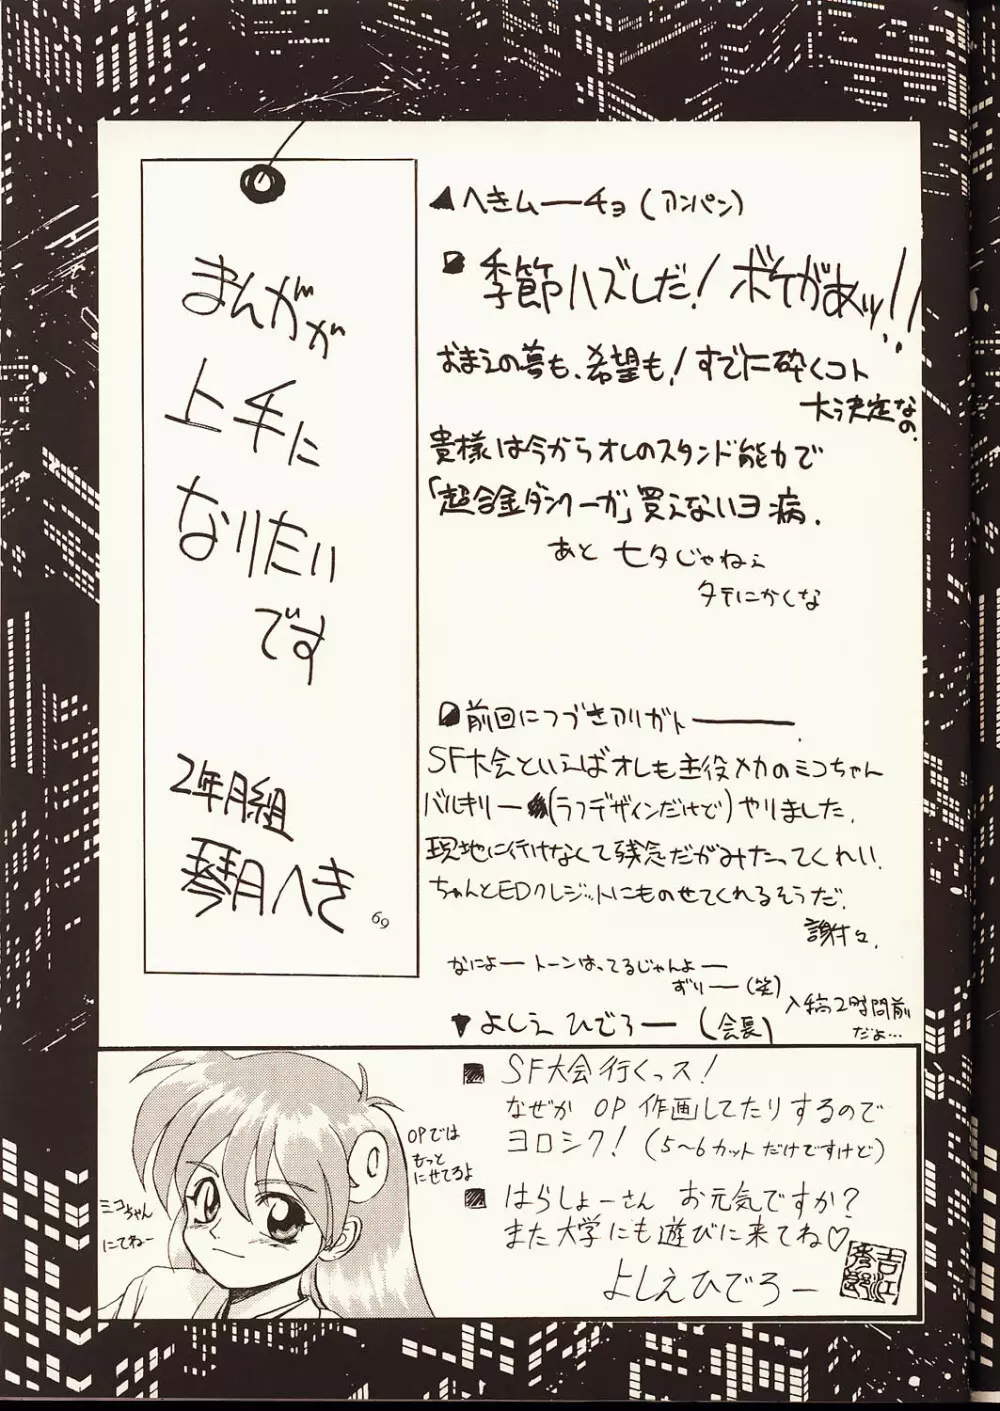 まんがが
上手に
なりたい
です
2年月組
琴月へき
69
▲へきムーチョ(アンパン)
季節ハズレだ!ボケがあッ!!
おまえの夢も、希望も!すでに砕くコト
大決定なの.
貴様は今からオレのスタンド能力で
「超合金ダンクーガ」買えないヨ病.
あと 七夕じゃねぇ
タテにかくな
前回につづきアリガトー.
SF大会といえばオレも主役メカのミコちゃん
バルキリー(ラフデザインだけど)やりました.
現地に行けなくて残念だがみたってくれい.
ちゃんとEDクレジットにものせてくれるそうだ.
謝々.
なによー トーンはってるじゃんよー
ずりー(笑)
入稿2時間前
だよ…
▼よしえ ひでろー(会長)
■ SF大会行くっス!
なぜか OP 作画してたりするので
ヨロシク!(5~6カットだけですけど)
■ はらしょーさん お元気ですか?
また大学にも遊びに来てね♡
よしえひでろー
吉江
秀郎
OPでは
もっと
にせてろよ
ミコちゃん
にてねー